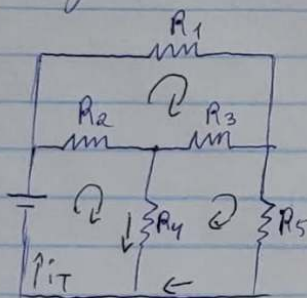 R1
R2 R3
R4 R5
iT